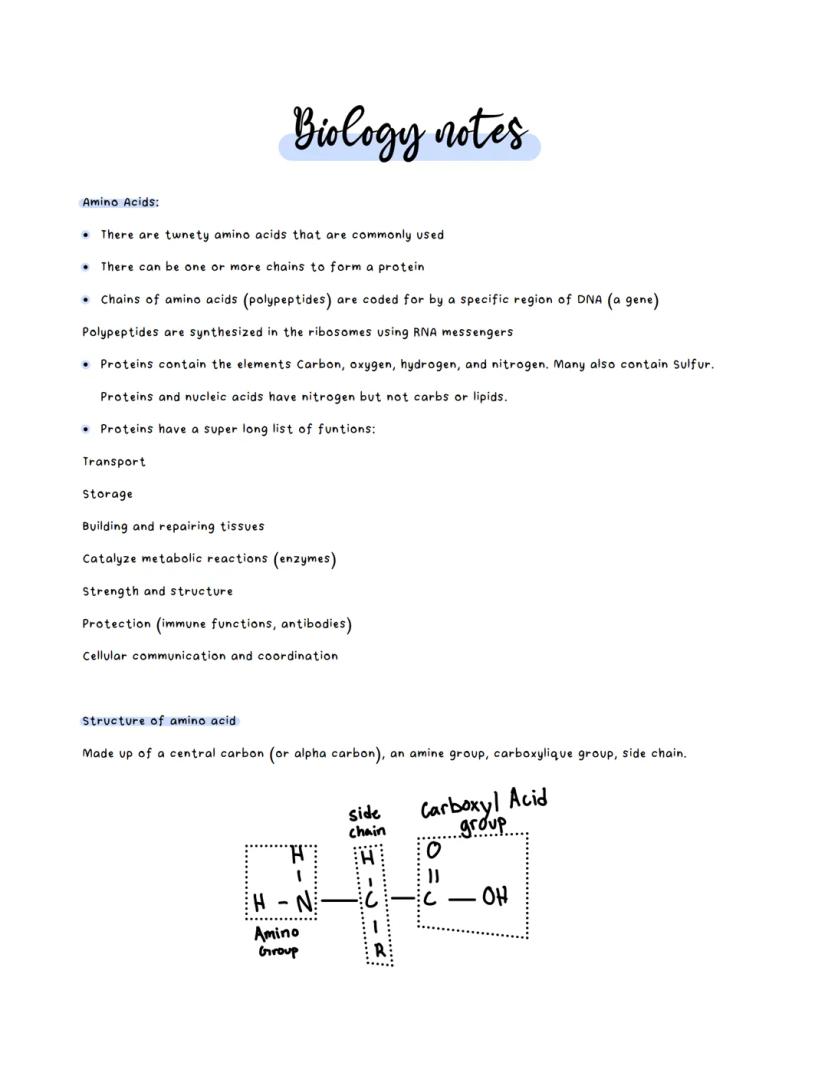 Biology notes
Amino Acids:
• There are twnety amino acids that are commonly used
• There can be one or more chains to form a protein
• Chains of amino acids (polypeptides) are coded for by a specific region of DNA (a gene)
Polypeptides are synthesized in the ribosomes using RNA messengers
• Proteins contain the elements Carbon, oxygen, hydrogen, and nitrogen. Many also contain Sulfur.
Proteins and nucleic acids have nitrogen but not carbs or lipids.
• Proteins have a super long list of funtions:
Transport
Storage
Building and repairing tissues
Catalyze metabolic reactions (enzymes)
Strength and structure
Protection (immune functions, antibodies)
Cellular communication and coordination
Structure of amino acid
Made up of a central carbon (or alpha carbon), an amine group, carboxylique group, side chain.
side
chain
Carboxyl Acid
group
H H O
H - N — C — C — OH
R
Amino
Group